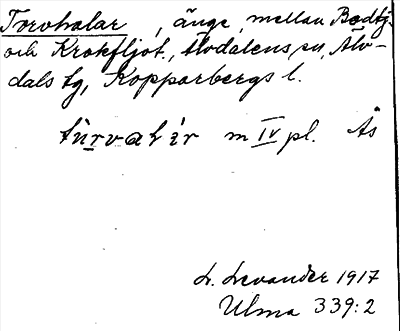 Torvhalar, änge mellan Bodtj.
och Krokfljot, Älvdalens sn, Älv-
dals tg, Kopparbergs l.
m IV pl. Ås
L. Levander 1917
Ulma 339:2